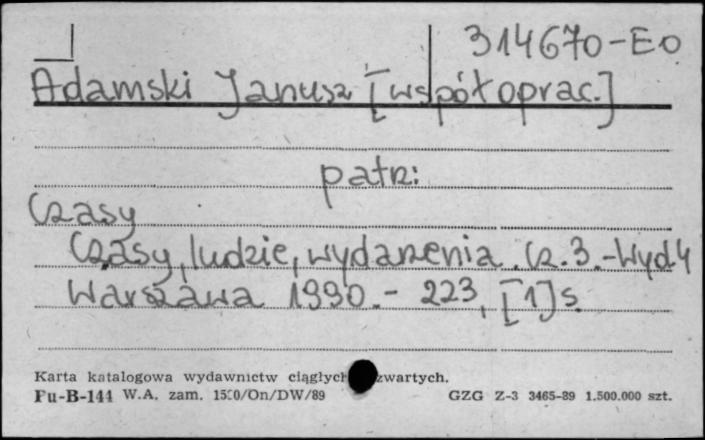 314670-E0
Adamski Janusz [współoprac.]
patrz:
Czasy
Czasy, ludzie, wydarzenia. Cz. 3.-Wyd 4
Warszawa 1990.- 223, [1] s.
Karta katalogowa wydawnictw ciągłych zwartych.
Pu-B-144 W.A. zam. /On/DW/89
GZG Z-3 3465-89 1.500.000 szt.